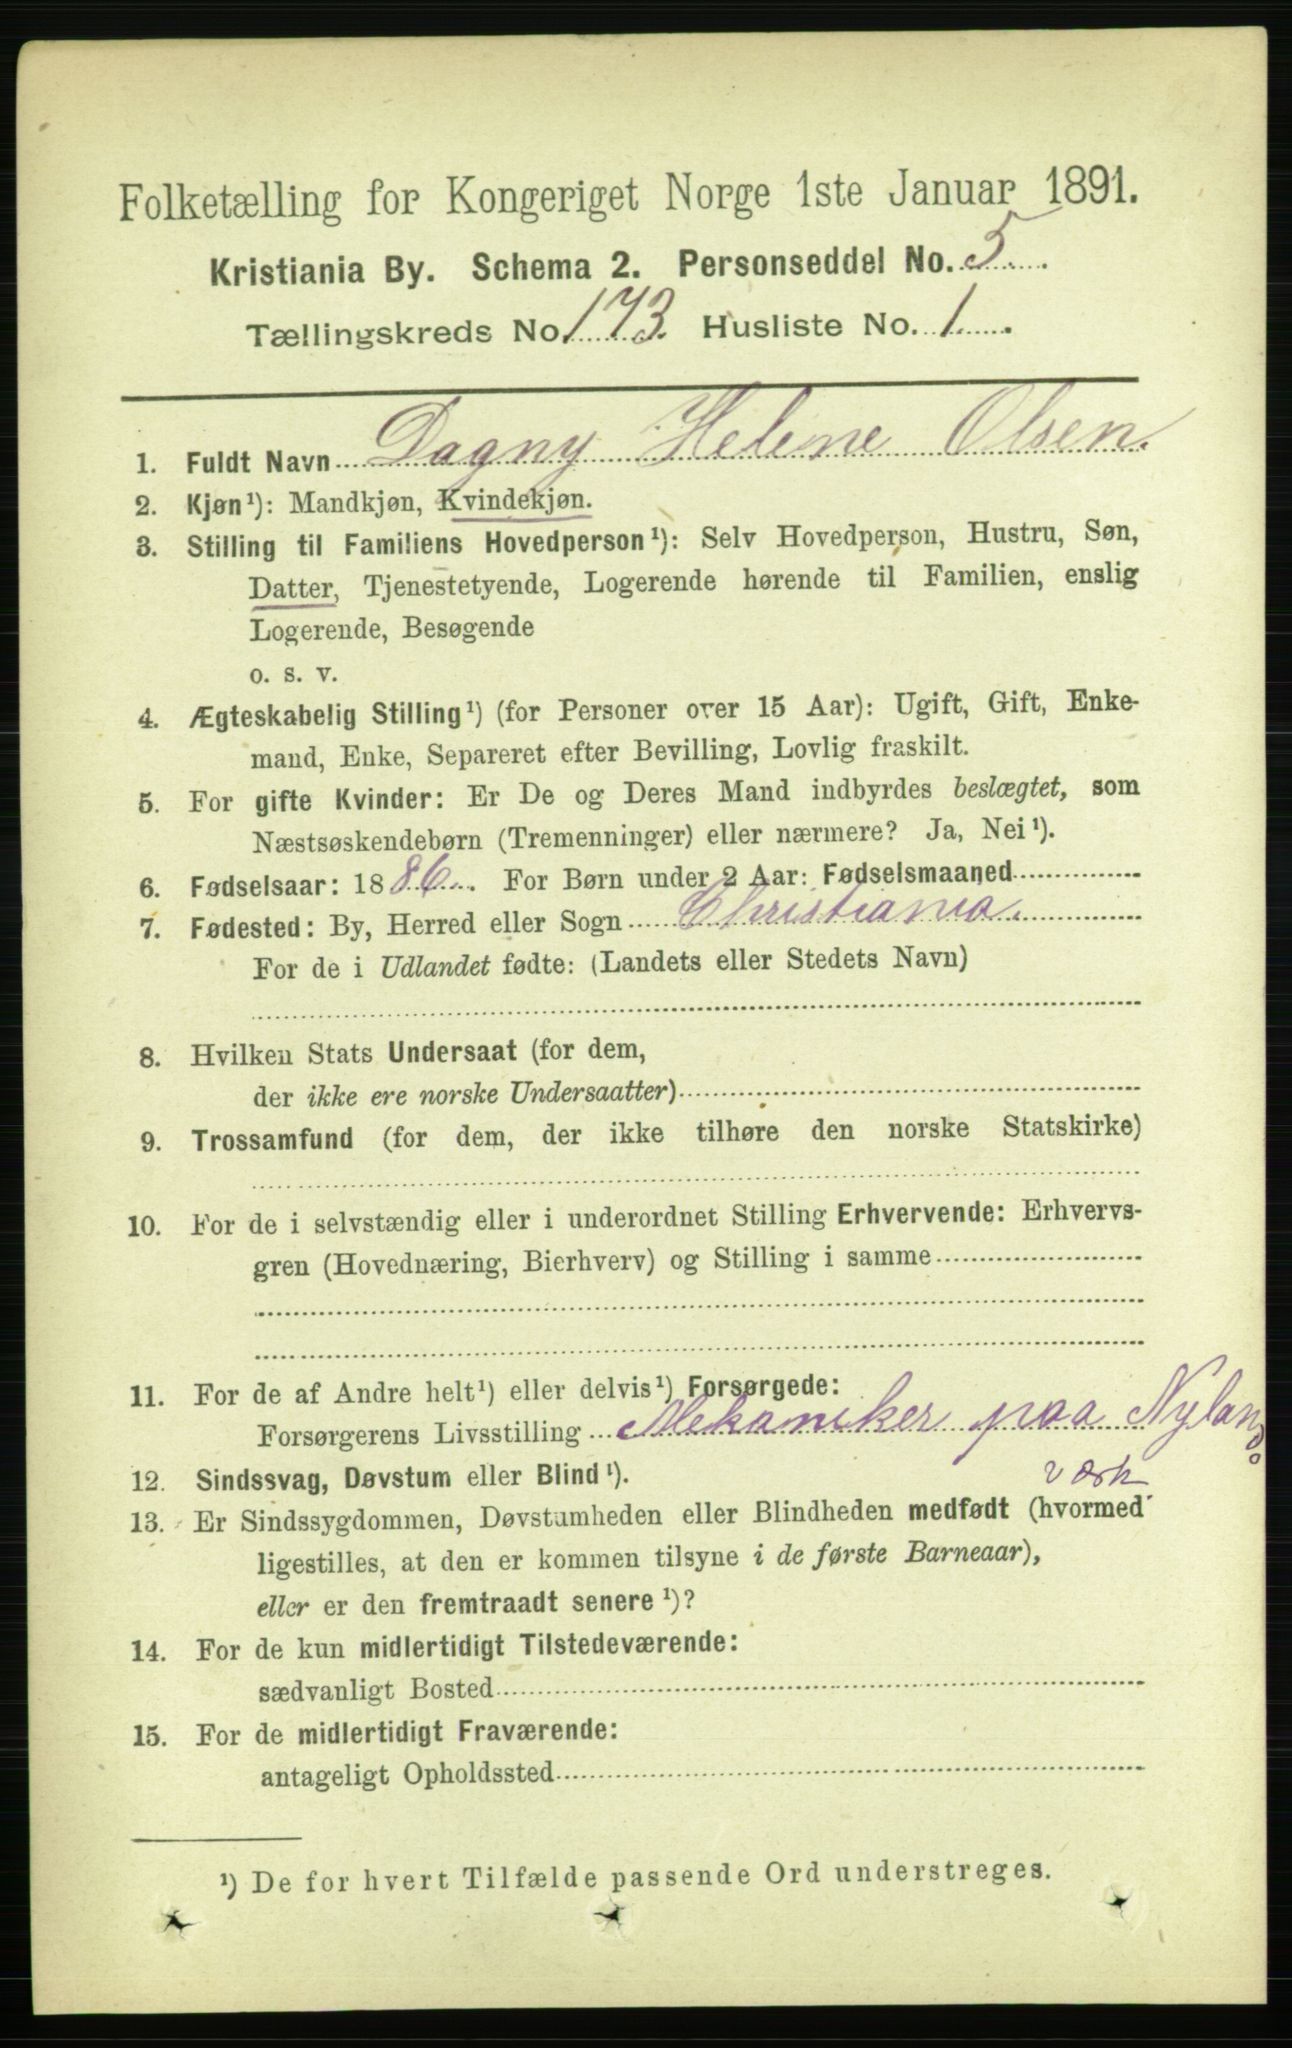 Folketælling for Kongeriget Norge 1ste Januar 1891.
Kristiania By. Schema 2. Personseddel No. 5
Tællingskreds No 173. Husliste No. 1
1. Fuldt Navn Dagny Helene Olsen.
2. Kjøn¹): Mandkjøn, Kvindekjøn.
3. Stilling til Familiens Hovedperson¹): Selv Hovedperson, Hustru, Søn,
Datter, Tjenestetyende, Logerende hørende til Familien, enslig
Logerende, Besøgende
o. s. v.
4. Ægteskabelig Stilling¹) (for Personer over 15 Aar): Ugift, Gift, Enke-
mand, Enke, Separeret efter Bevilling, Lovlig fraskilt.
5. For gifte Kvinder: Er De og Deres Mand indbyrdes beslægtet, som
Næstsøskendebørn (Tremenninger) eller nærmere? Ja, Nei¹).
6. Fødselsaar: 1886. For Børn under 2 Aar: Fødselsmaaned
7. Fødested: By, Herred eller Sogn Christiania.
For de i Udlandet fødte: (Landets eller Stedets Navn)
8. Hvilken Stats Undersaat (for dem,
der ikke ere norske Undersaatter)
9. Trossamfund (for dem, der ikke tilhøre den norske Statskirke)
10. For de i selvstændig eller i underordnet Stilling Erhvervende: Erhvervs-
gren (Hovednæring, Bierhverv) og Stilling i samme
11. For de af Andre helt¹) eller delvis¹) Forsørgede:
Forsørgerens Livsstilling Mekaniker paa Nylands
værk
12. Sindssvag, Døvstum eller Blind¹).
13. Er Sindssygdommen, Døvstumheden eller Blindheden medfødt (hvormed
ligestilles, at den er kommen tilsyne i de første Barneaar),
eller er den fremtraadt senere¹)?
14. For de kun midlertidigt Tilstedeværende:
sædvanligt Bosted
15. For de midlertidigt Fraværende:
antageligt Opholdssted
¹) De for hvert Tilfælde passende Ord understreges.